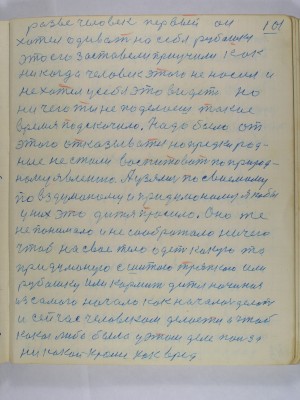 разве человек первый он 101
хотел одиват на себя рубашку
это его заставели приучили как
никогда человек этого не носил и
не хотел у себя это видеть но
ничего ты не поделаеш такие
время подскочило. Надо было от
этого отказыватся но предки род-
ные не стали воспитоват по природ-
ному явлению. А узяли по своему
по вздуманому и придуманому
у них это дитя просило. Оно же
не понимало и не соображало ничего
чтоб на свае тело одет какую то
придуманую сшитою тряпкою или
рубашку или кормит дитя начиная
из самого начало как начало делат
и сейчас человеком делается а чтоб
какая либо была у этом деле польза
никакой кроме как вред